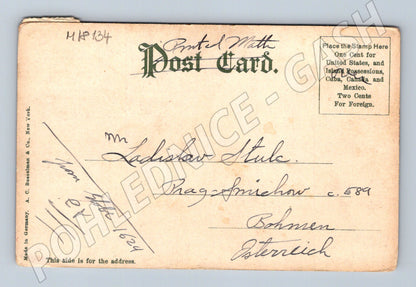 MAP 134
Printed Math
Post Card.
Place the Stamp Here
One Cent for
United States, and
Island Possessions,
Cuba, Canada and
Mexico.
Two Cents
For Foreign.
Mr
Ladislav Stulc.
Prag-Smichow c. 689
Bohmen
Österreich
from
Made in Germany. A. C. Bosselman & Co., New York.
This side is for the address.
POHLEDNICE - GASH